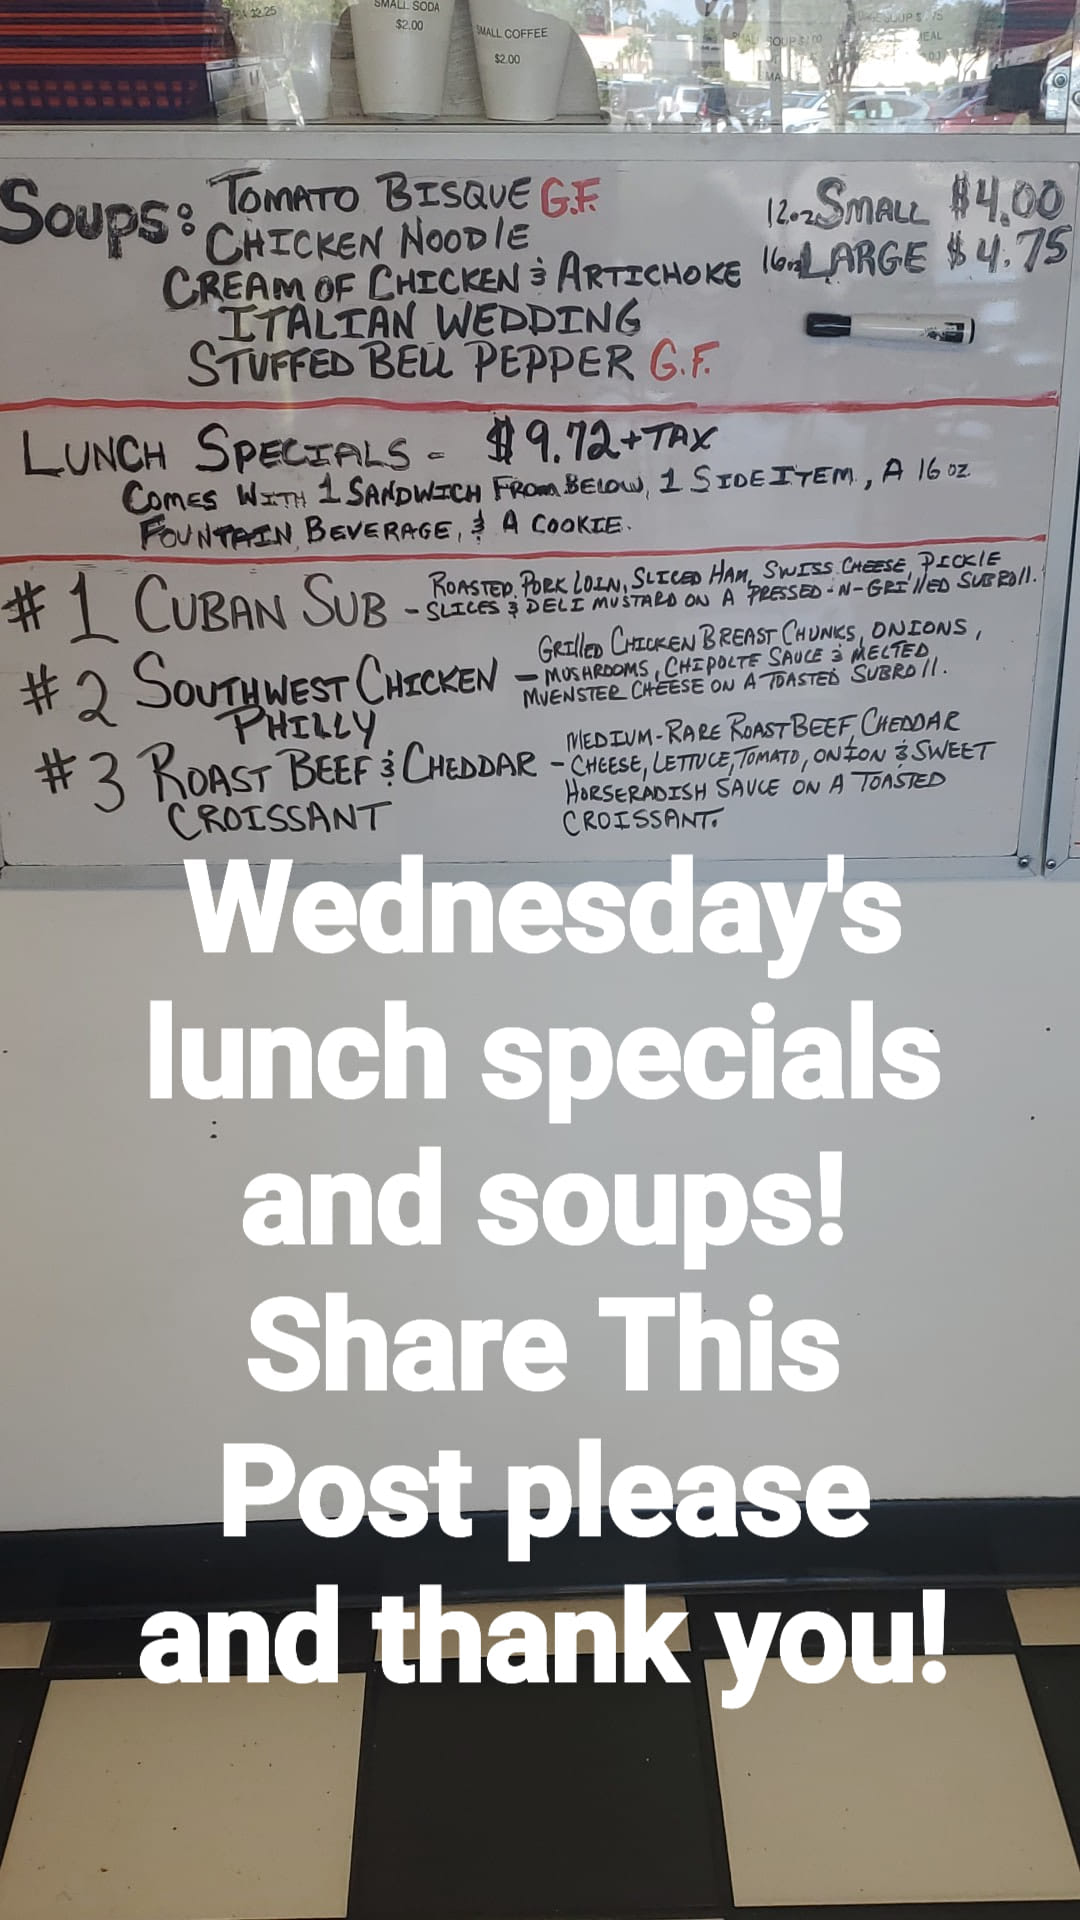 $2.25
SMALL SODA
$2.00
SMALL COFFEE
$2.00
Soups: TOMATO BISQUE G.F.
CHICKEN NOODLE
CREAM OF CHICKEN & ARTICHOKE
ITALIAN WEDDING
STUFFED BELL PEPPER G.F.
12oz SMALL $4.00
16oz LARGE $4.75
LUNCH SPECIALS - $9.72 + TAX
COMES WITH 1 SANDWICH FROM BELOW, 1 SIDE ITEM, A 16 OZ
FOUNTAIN BEVERAGE, & A COOKIE.
#1 CUBAN SUB - ROASTED PORK LOIN, SLICED HAM, SWISS CHEESE, PICKLE
SLICES & DELI MUSTARD ON A PRESSED-N-GRILLED SUBROLL.
#2 SOUTHWEST CHICKEN
PHILLY
GRILLED CHICKEN BREAST CHUNKS, ONIONS,
- MUSHROOMS, CHIPOLTE SAUCE & MELTED
MUENSTER CHEESE ON A TOASTED SUBROLL.
#3 ROAST BEEF & CHEDDAR
CROISSANT
MEDIUM-RARE ROAST BEEF, CHEDDAR
- CHEESE, LETTUCE, TOMATO, ONION & SWEET
HORSERADISH SAUCE ON A TOASTED
CROISSANT.
Wednesday's
lunch specials
and soups!
Share This
Post please
and thank you!